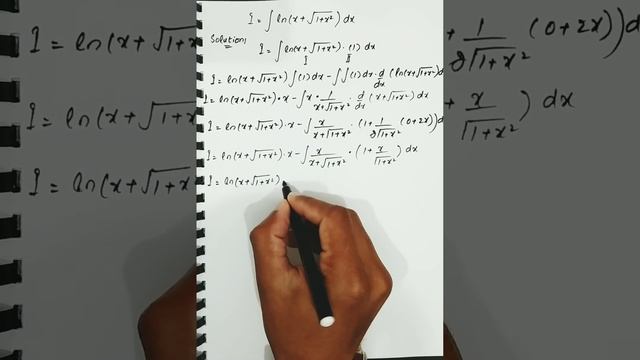 I = ∫ ln(x+√1+x²) dx
Solution:
I = ∫ ln(x+√1+x²)·(1) dx
I II
I = ln(x+√1+x²) ∫(1)dx - ∫∫(1)dx·d/dx (ln(x+√1+x²)d
I = ln(x+√1+x²)·x - ∫x·1/(x+√1+x²)·d/dx (x+√1+x²) dx
I = ln(x+√1+x²)·x - ∫x/(x+√1+x²)·(1+1/(2√1+x²) (0+2x))d
I = ln(x+√1+x²)·x - ∫x/(x+√1+x²)·(1+x/√1+x²) dx
I = ln(x+√1+x²)
I = ln(x+√1+x
I = ln(x+√1+x
I = ln(x+√1+x
1/(2√1+x²) (0+2x))d
+ x/√1+x²) dx